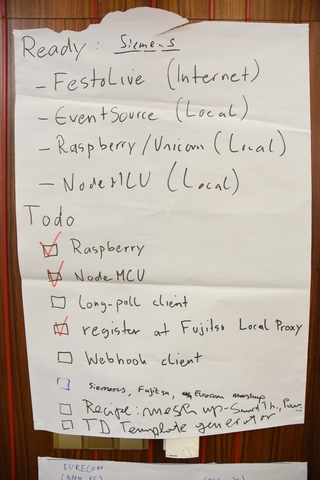 Ready: Siemens
- FestoLive (Internet)
- EventSource (Local)
- Raspberry/Unicorn (Local)
- NodeMCU (Local)
Todo
Raspberry
NodeMCU
Long-poll client
register at Fujitsu Local Proxy
Webhook client
Siemens, Fujitsu, Eurecom mashup
Recipe: mash up -
TD Template generator
EURECOM